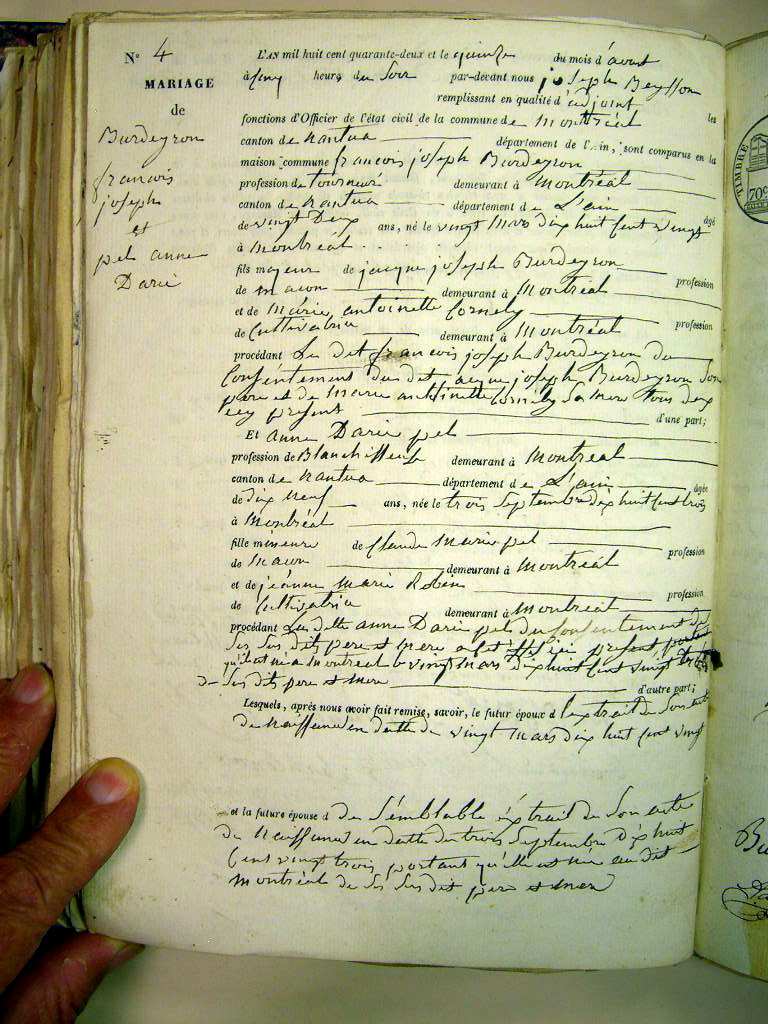 N° 4
MARIAGE
de
Burdeyron
francois
joseph
et
pel anne
Darie
L'AN mil huit cent quarante-deux et le quinze du mois d'avout
à cinq heure du Soir par-devant nous joseph Beysson
remplissant en qualité d'adjoint les
fonctions d'Officier de l'état civil de la commune de Montréal
canton de Nantua département de l'Ain, sont comparus en la
maison commune francois joseph Burdeyron
profession de tourneur demeurant à Montréal
canton de Nantua département de L'ain âgé
de vingt Deux ans, né le vingt Mars dix huit Cent vingt
à Montréal
fils majeur de jacque joseph Burdeyron profession
de macon demeurant à Montréal
et de Marie antoinette Cornely profession
de Cultivatrice demeurant à Montréal
procédant Le dit francois joseph Burdeyron du
Consentement du dit jacque joseph Burdeyron Son
pere et de Marie antoinette Cornely Sa Mere tous deux
icy présent d'une part;
Et anne Darie pel
profession de Blanchisseuse demeurant à Montréal
canton de Nantua département de L'ain âgée
de dix Neuf ans, née le trois Septembre dix huit Cent vingt trois
à Montréal
fille mineure de Claude Marie pel profession
de Macon demeurant à Montréal
et de jeanne Marie Robin profession
de Cultivatrice demeurant à Montréal
procédant La ditte anne Darie pel du Consentement de
Ses Sus dits pere et Mere present
qu'il est né a Montréal le vingt Mars dix huit Cent vingt
de Ses Sus dits pere et Mere d'autre part;
Lesquels, après nous avoir fait remise, savoir, le futur époux d l'extrait de Son acte
de Naissance en datte du vingt Mars dix huit Cent vingt
et la future épouse d du Semblable extrait de Son acte
de Naissance en datte du trois Septembre dix huit
Cent vingt trois portant qu'elle est née au dit
Montréal de Ses Sus dit pere et Mere
TIMBRE
70c